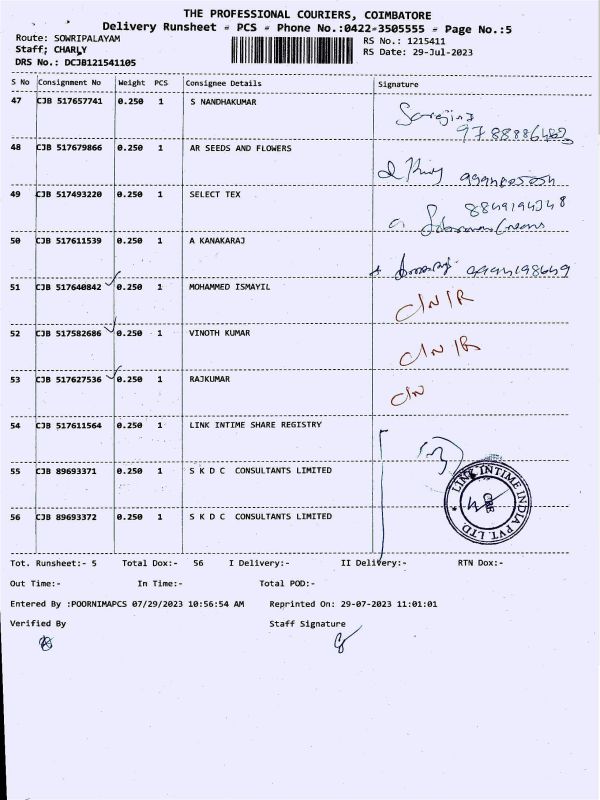 THE PROFESSIONAL COURIERS, COIMBATORE
Delivery Runsheet - PCS - Phone No.:0422-3505555 - Page No.:5
Route: SOWRIPALAYAM
RS No.: 1215411
Staff; CHARLY
RS Date: 29-Jul-2023
DRS No.: DCJB121541105
S No Consignment No Weight PCS Consignee Details Signature
47 CJB 517657741 0.250 1 S NANDHAKUMAR
48 CJB 517679866 0.250 1 AR SEEDS AND FLOWERS
49 CJB 517493220 0.250 1 SELECT TEX
50 CJB 517611539 0.250 1 A KANAKARAJ
51 CJB 517640842 0.250 1 MOHAMMED ISMAYIL
52 CJB 517582686 0.250 1 VINOTH KUMAR
53 CJB 517627536 0.250 1 RAJKUMAR
54 CJB 517611564 0.250 1 LINK INTIME SHARE REGISTRY
55 CJB 89693371 0.250 1 S K D C CONSULTANTS LIMITED
56 CJB 89693372 0.250 1 S K D C CONSULTANTS LIMITED
LINK INTIME INDIA PVT. LTD. * CBE *
Tot. Runsheet:- 5 Total Dox:- 56 I Delivery:- II Delivery:- RTN Dox:-
Out Time:- In Time:- Total POD:-
Entered By :POORNIMAPCS 07/29/2023 10:56:54 AM Reprinted On: 29-07-2023 11:01:01
Verified By Staff Signature